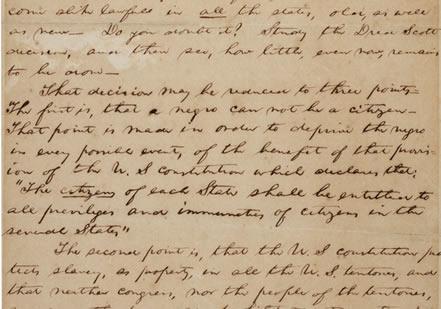 come alike lawful in all the states, old, as well
as new— Do you doubt it? Study the Dred Scott
decision, and then see, how little, even now, remains
to be done—
That decision may be reduced to three points—
The first is, that a negro can not be a citizen—
That point is made in order to deprive the negro
in every possible event, of the benefit of that provis-
ion of the U. S constitution which declares that:
"The citizens of each State shall be entitled to
all previliges and immunities of citizens in the
several States"
The second point is, that the U. S constitution pro
tects slavery, as property, in all the U. S. teritories, and
that neither congress, nor the people of the teritories,